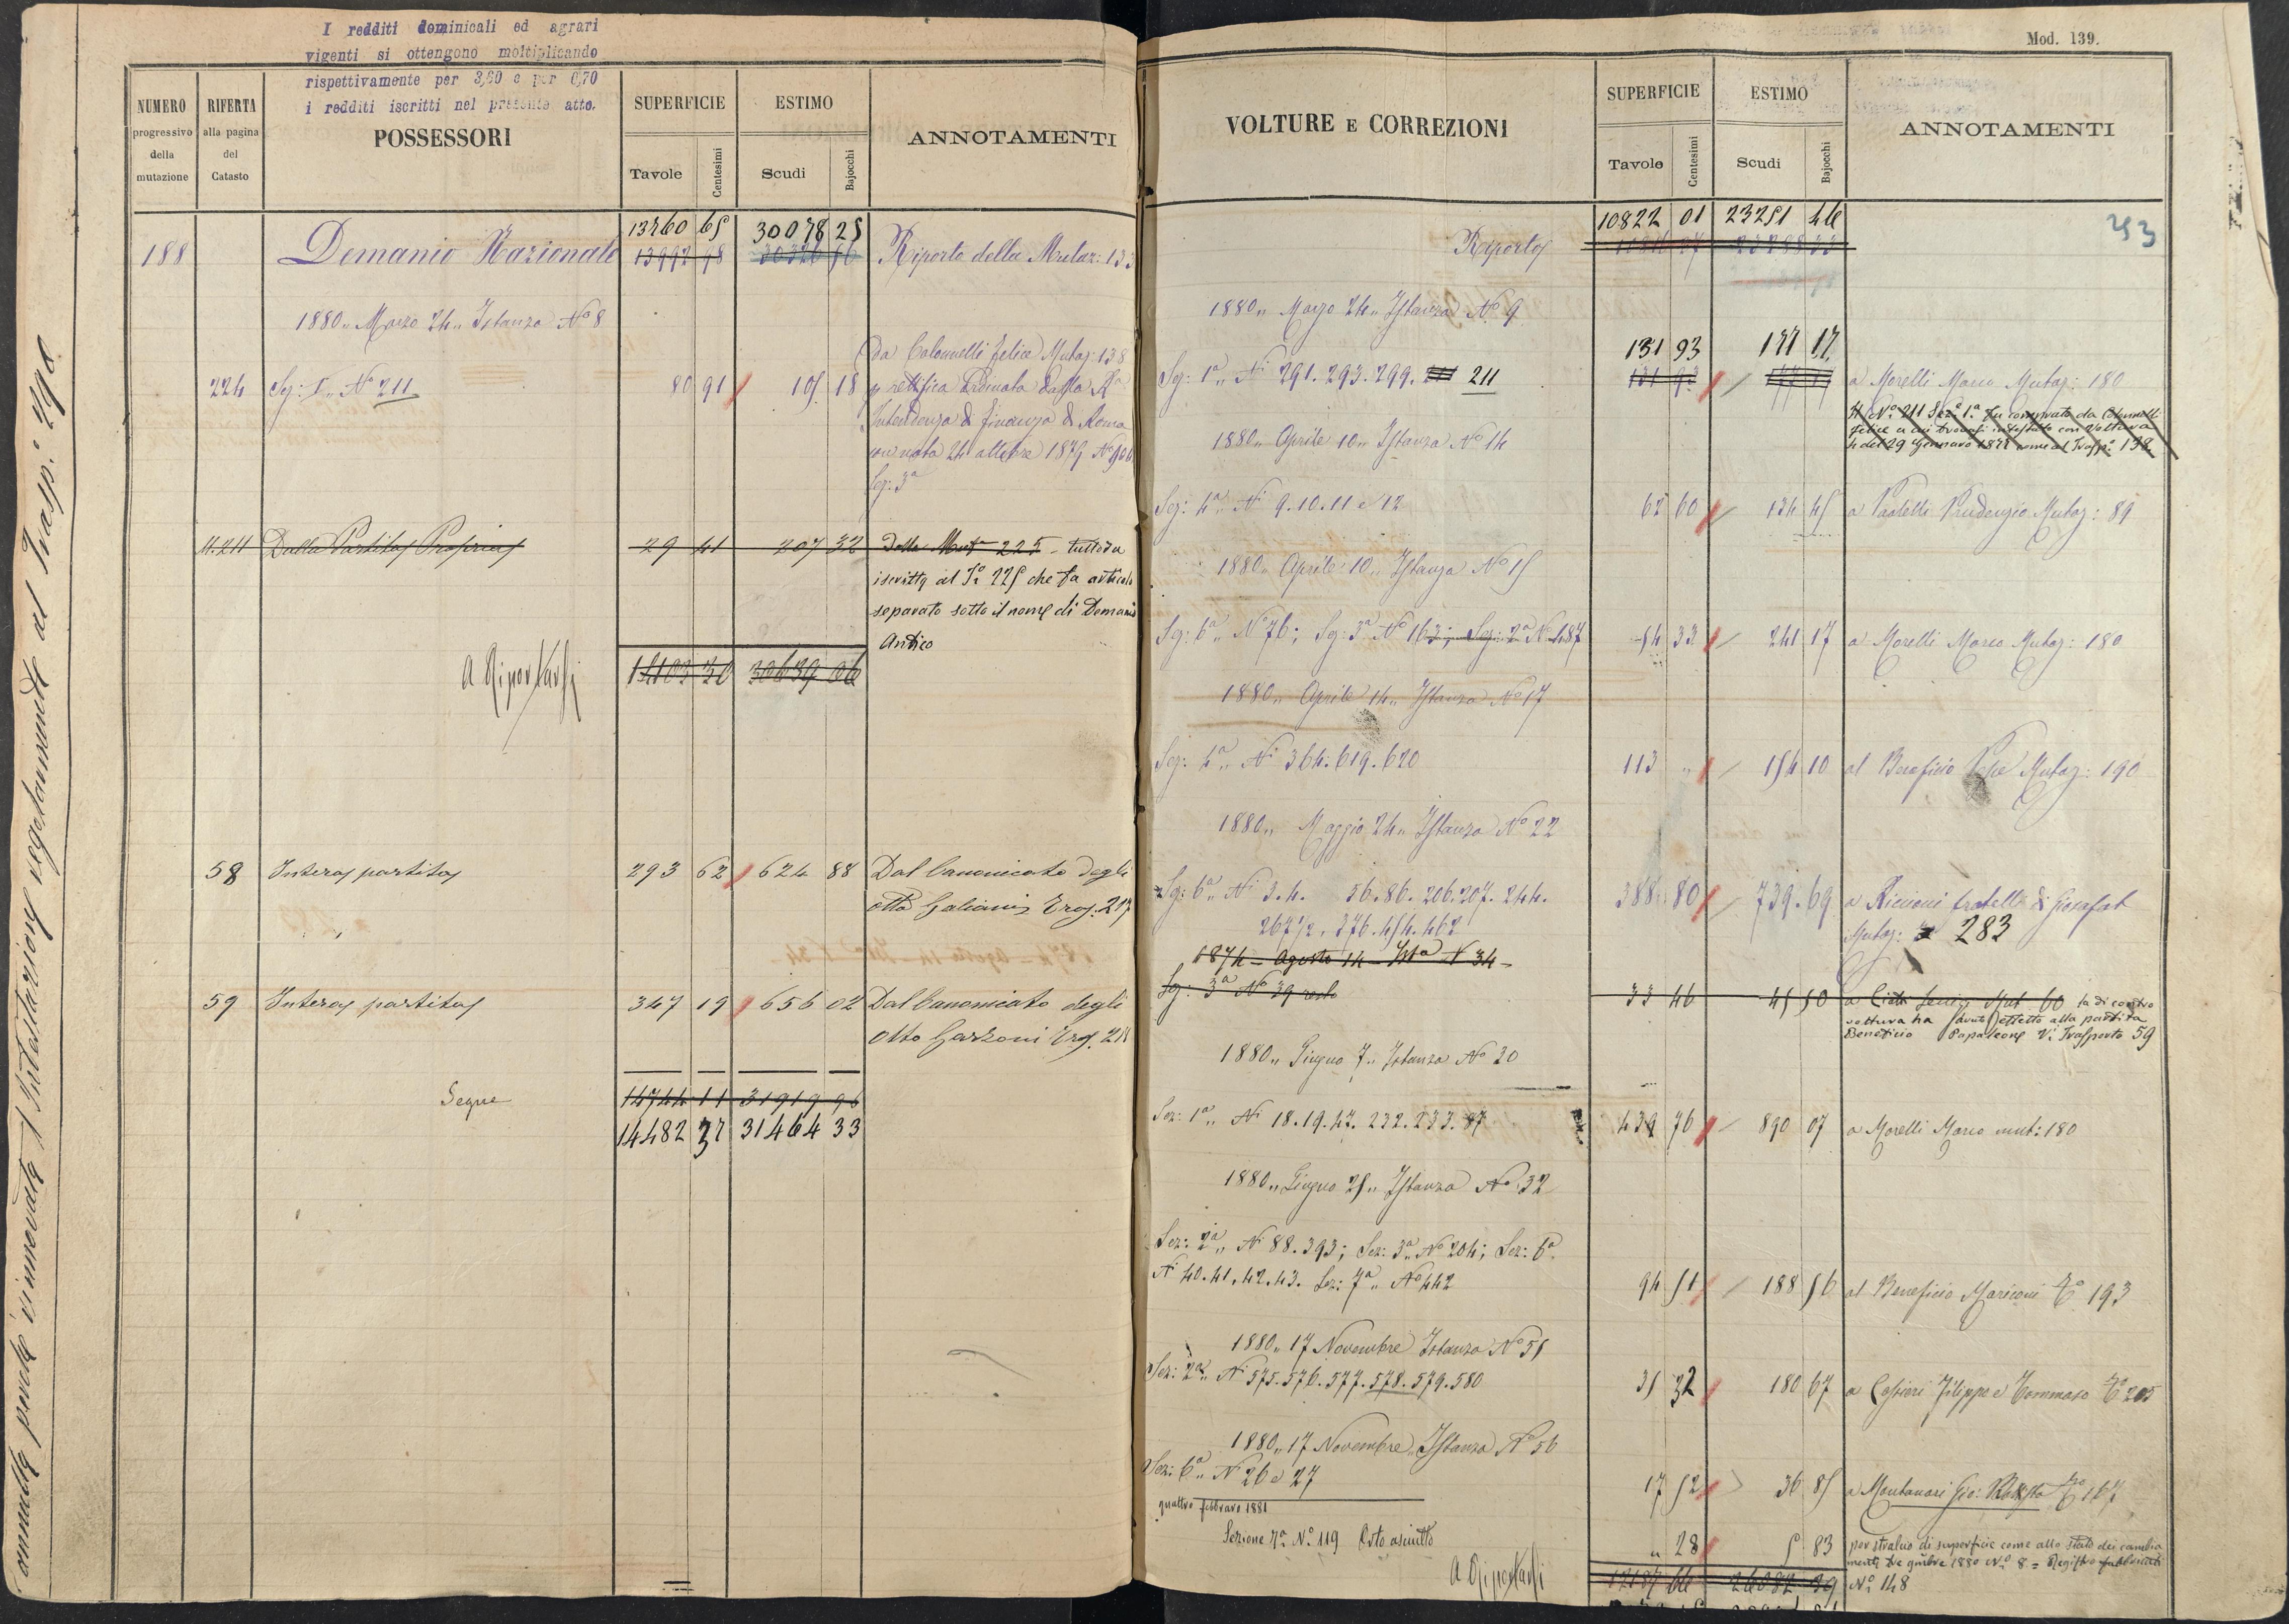 I redditi dominicali ed agrari
vigenti si ottengono moltiplicando
rispettivamente per 3,60 e per 0,70
i redditi iscritti nel presente atto.
NUMERO progressivo della mutazione
RIFERTA alla pagina del Catasto
POSSESSORI
SUPERFICIE
Tavole Centesimi
ESTIMO
Scudi Bajocchi
ANNOTAMENTI
13460 65 30078 25
188 Demanio Nazionale 13992 98 30326 56 Riporto della Mutaz: 133
1880 „ Marzo 24 „ Istanza Nº 8
da Colonnelli Felice Mutaz: 138
224 Sez: I „ Nº 211 80 91 105 18 p rettifica ordinata dalla Rª
Intendenza di Finanza di Roma
con nota 24 ottobre 1879 Nº
Sez: 3ª
11.211 Dalla Partita 29 41 207 32 Dalla Mut 225 tuttora
iscritta al Tº 225 che fa articolo
separato sotto il nome di Demanio
Antico
A Riportarsi 14103 30 30639 06
58 Intera partita 293 62 624 88 Dal Canonicato degli
otto Galiani Trasp. 217
59 Intera partita 347 19 656 02 Dal Canonicato degli
Otto Garzoni Trasp. 218
Segue 14744 11 31919 96
14482 37 31464 33
annullata perché rinnovata l'intestazione vegetavamente al Trasp.º 290
Mod. 139.
VOLTURE E CORREZIONI
SUPERFICIE
Tavole Centesimi
ESTIMO
Scudi Bajocchi
ANNOTAMENTI
253
10822 01 23251 46
Riporto
1880 „ Marzo 24 „ Istanza Nº 9
131 93 177 17
Sez: 1ª „ Nⁱ 291. 293. 299. 211 131 93 177 17 a Morelli Marco Mutaz: 180
Il Nº 211 Sezº 1ª fu comprato da Colonnelli
Felice a cui trovasi intestato con Voltura
4 del 29 Gennaro 1877 come al Traspº 138
1880 „ Aprile 10 „ Istanza Nº 14
Sez: 4ª „ Nⁱ 9. 10. 11 e 12 62 60 134 45 a Paolelli Prudenzio Mutaz: 89
1880 „ Aprile 10 „ Istanza Nº 15
Sez: 6ª „ Nº 76; Sez: 3ª Nº 163; Sez: 2ª Nº 487 54 33 241 17 a Morelli Marco Mutaz: 180
1880 „ Aprile 14 „ Istanza Nº 17
Sez: 4ª „ Nⁱ 364. 619. 620 113 „ 154 10 al Beneficio Mutaz: 190
1880 „ Maggio 24 „ Istanza Nº 22
Sez: 6ª „ Nⁱ 3. 4. 56. 86. 206. 207. 244. 388 80 739 69 a Riccioni fratelli di Giosafat
267 1/2. 376. 454. 462 Mutaz: 283
1874 = Agosto 14 = Istª Nº 34 =
Sez: 3ª Nº 39 resto 33 46 45 50 a Mut 60 la di contro
voltura ha avuto effetto alla partita
Beneficio Papaleone Vⁱ Trasporto 59
1880 „ Giugno 7 „ Istanza Nº 30
Sez: 1ª „ Nⁱ 18. 19. 47. 232. 233. 87 439 76 890 07 a Morelli Marco mut: 180
1880 „ Giugno 25 „ Istanza Nº 32
Sez: 2ª „ Nⁱ 88. 393; Sez: 3ª „ Nº 204; Sez: 6ª
Nⁱ 40. 41. 42. 43. Sez: 7ª „ Nº 442 94 51 188 56 al Beneficio Mariconi Tº 193
1880 „ 17 Novembre Istanza Nº 51
Sez: 2ª „ Nⁱ 575. 576. 577. 578. 579. 580 35 32 180 67 a Filippo e Tommaso Tº 205
1880 „ 17 Novembre „ Istanza Nº 56
Sez: 6ª „ Nⁱ 26 e 27 17 52 36 85 a Montanari Gio: Battista Tº 167
quattro febbraro 1881
Sezione 7ª Nº 119 Orto asciutto „ 28 5 83 per stralcio di superficie come allo Stato dei cambia
menti tre 9mbre 1880 Nº 8 = Registro fabbricati
A Riportarsi 12187 66 26082 39 Nº 148